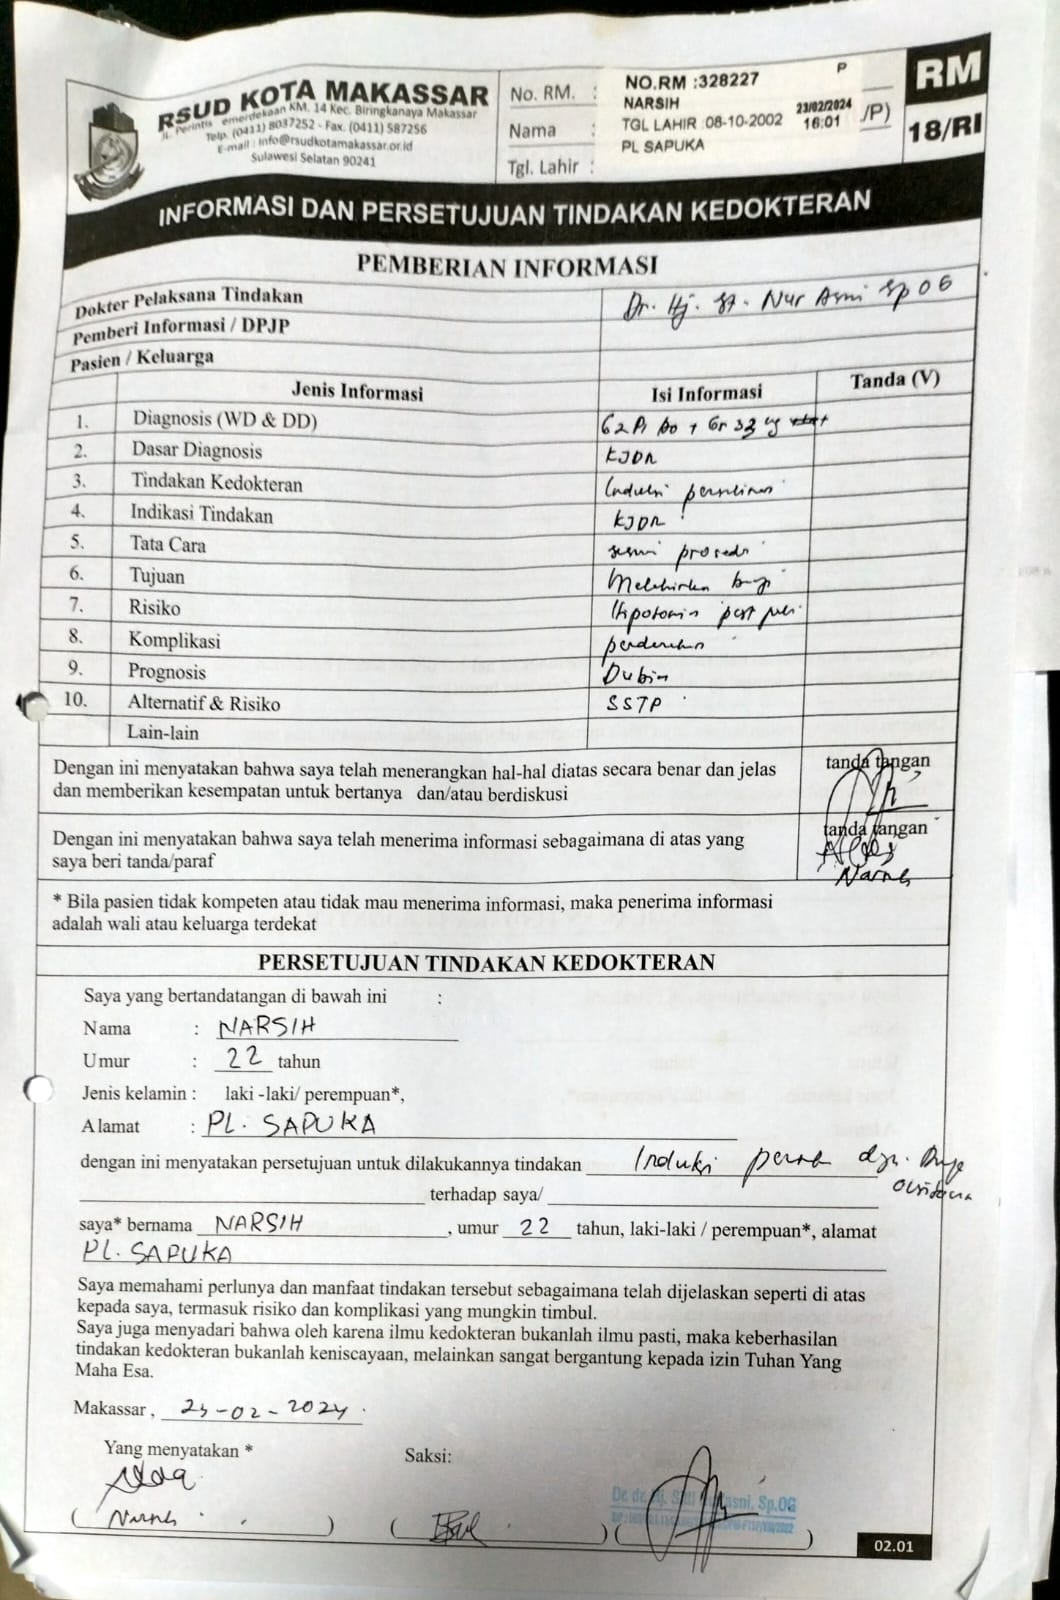 RSUD KOTA MAKASSAR
Jl. Perintis emerdekaan KM. 14 Kec. Biringkanaya Makassar
Telp. (0411) 8037252 - Fax. (0411) 587256
E-mail : info@rsudkotamakassar.or.id
Sulawesi Selatan 90241
No. RM. :
Nama :
Tgl. Lahir :
P
NO.RM :328227
NARSIH
TGL LAHIR :08-10-2002
PL SAPUKA
23/02/2024
16:01
/P)
RM
18/RI
INFORMASI DAN PERSETUJUAN TINDAKAN KEDOKTERAN
PEMBERIAN INFORMASI
Dokter Pelaksana Tindakan Dr. Hj. St. Nur Asni SpOG
Pemberi Informasi / DPJP
Pasien / Keluarga
Jenis Informasi Isi Informasi Tanda (V)
1. Diagnosis (WD & DD) G2 P1 A0
2. Dasar Diagnosis KJDR
3. Tindakan Kedokteran Induksi persalinan
4. Indikasi Tindakan KJDR
5. Tata Cara sesuai prosedur
6. Tujuan Melahirkan bayi
7. Risiko Hipotonia post
8. Komplikasi perdarahan
9. Prognosis Dubia
10. Alternatif & Risiko SSTP
Lain-lain
Dengan ini menyatakan bahwa saya telah menerangkan hal-hal diatas secara benar dan jelas
dan memberikan kesempatan untuk bertanya dan/atau berdiskusi
tanda tangan
Dengan ini menyatakan bahwa saya telah menerima informasi sebagaimana di atas yang
saya beri tanda/paraf
tanda tangan
Narsih
* Bila pasien tidak kompeten atau tidak mau menerima informasi, maka penerima informasi
adalah wali atau keluarga terdekat
PERSETUJUAN TINDAKAN KEDOKTERAN
Saya yang bertandatangan di bawah ini :
Nama : NARSIH
Umur : 22 tahun
Jenis kelamin : laki -laki/ perempuan*,
Alamat : PL. SAPUKA
dengan ini menyatakan persetujuan untuk dilakukannya tindakan Induksi
terhadap saya/
saya* bernama NARSIH , umur 22 tahun, laki-laki / perempuan*, alamat
PL. SAPUKA
Saya memahami perlunya dan manfaat tindakan tersebut sebagaimana telah dijelaskan seperti di atas
kepada saya, termasuk risiko dan komplikasi yang mungkin timbul.
Saya juga menyadari bahwa oleh karena ilmu kedokteran bukanlah ilmu pasti, maka keberhasilan
tindakan kedokteran bukanlah keniscayaan, melainkan sangat bergantung kepada izin Tuhan Yang
Maha Esa.
Makassar , -02-2024
Yang menyatakan * Saksi:
( Narsih ) ( ) ( )
02.01